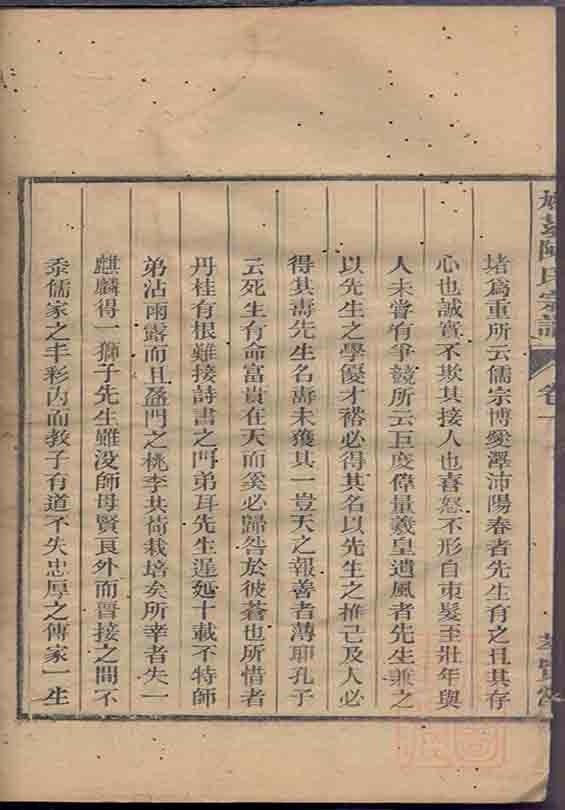 陳氏宗譜
卷一
堵爲重所云儒宗博綜澤沛陽春者先生有之且其存
心也誠實不欺其接人也喜怒不形自束髮至壯年與
人未嘗有爭競所云巨度偉量羲皇遺風者先生兼之
以先生之學優才裕必得其名以先生之推己及人必
得其壽先生名壽未獲其一豈天之報善者薄聊孔子
云死生有命富貴在天而奚必歸咎於彼蒼也所惜者
丹桂有根難接詩書之門弟耳先生遲延十載不特師
弟沾雨露而且盈門之桃李共荷栽培矣所幸者失一
麒麟得一獅子先生雖没師母賢良外而晉接之間不
忝儒家之丰彩内而教子有道不失忠厚之傳家一生